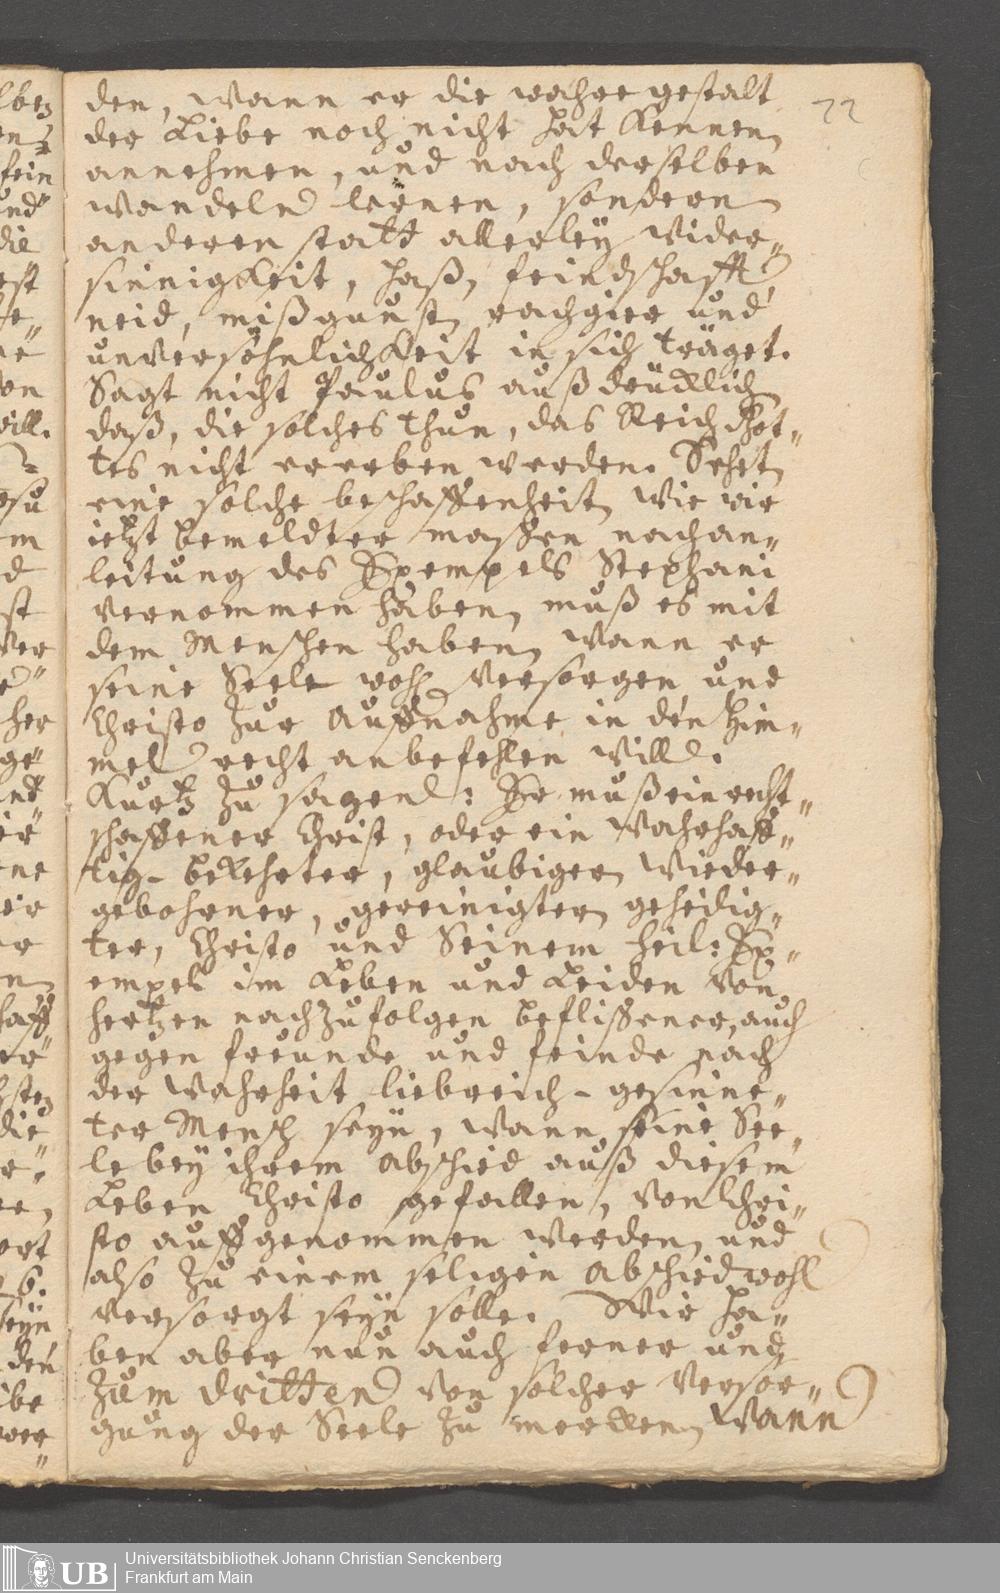 22
den, wann er die wahre gestalt
der Liebe noch nicht hat kennen,
annehmen, und nach derselben
wandeln lernen, sondern
anderen statt allerley wider„
sinnigkeit, haß, feindschafft,
neid, mißgunst, rachgier und
unversöhnlichkeit in sich träget.
Sagt nicht Paulus außdrücklich,
daß, die solches thun, das Reich Got„
tes nicht ererben werden. Sehet,
eine solche beschaffenheit, wie wir
ietzt bemeldter massen nach an„
leitung des Exempels Stephani
vernommen haben, muß es mit
dem Menschen haben, wann er
seine Seele wohl versorgen, und
Christo zur auffnahme in den Him„
mel recht anbefehlen will.
Kurtz zu sagen: Er muß ein recht„
schaffener Christ, oder ein wahrhaff„
tig-bekehrter, glaubiger, wieder„
gebohrner, gereinigter, geheilig„
ter, Christo und Seinem heil: Ex„
empel im Leben und Leiden von
hertzen nachzufolgen beflissener, auch
gegen freunde und feinde nach
der wahrheit liebreich-gesinne„
ter Mensch seyn, wann seine See„
le bey ihrem abschied auß diesem
Leben Christo gefallen, von Chri„
sto auffgenommen werden, und
also zu einem seligen abschied wohl
versorgt seyn solle. Wir ha„
ben aber nun auch ferner und
zum dritten von solcher versor„
gung der Seele zu mercken, Wann
UB
Universitätsbibliothek Johann Christian Senckenberg
Frankfurt am Main